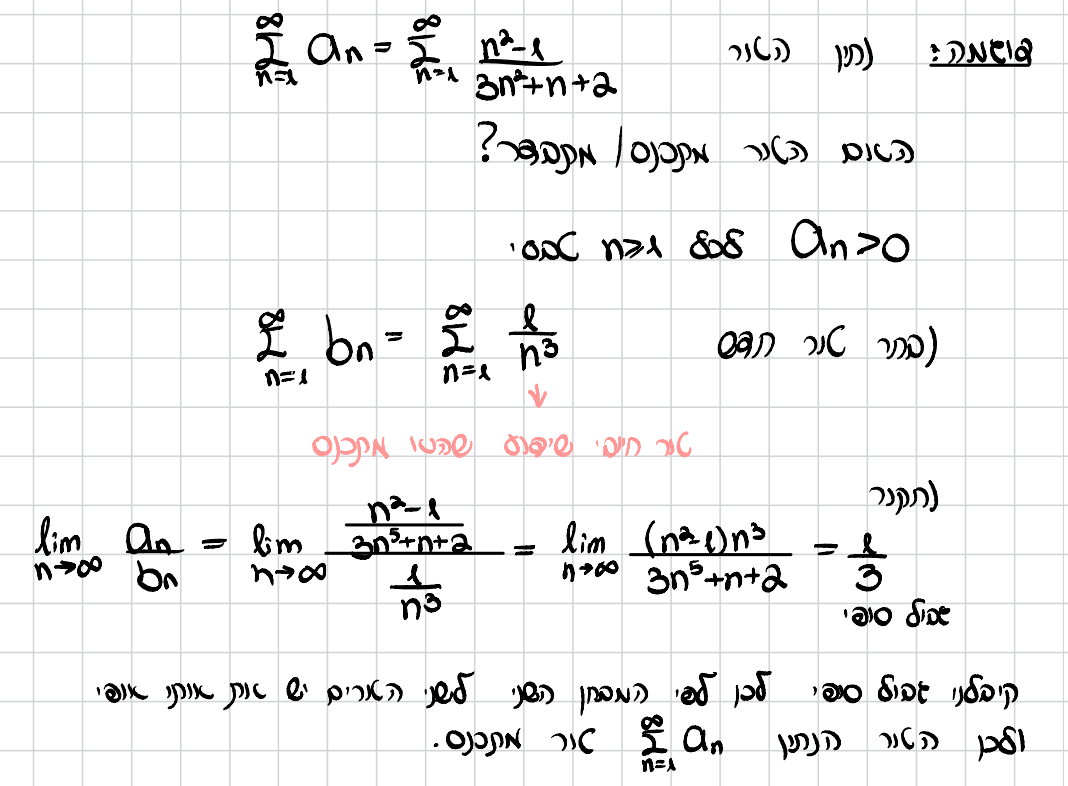 דוגמה: נתון הטור $\sum_{n=1}^{\infty} a_n = \sum_{n=1}^{\infty} \frac{n^2-1}{3n^2+n+2}$
האם הטור מתכנס / מתבדר?
$a_n > 0$ לכל $n \geqslant 1$ טבעי.
נבחר טור חדש $\sum_{n=1}^{\infty} b_n = \sum_{n=1}^{\infty} \frac{1}{n^3}$
↓
טור חיובי שידוע שהוא מתכנס
$\lim_{n \to \infty} \frac{a_n}{b_n} = \lim_{n \to \infty} \frac{\frac{n^2-1}{3n^5+n+2}}{\frac{1}{n^3}} = \lim_{n \to \infty} \frac{(n^2-1)n^3}{3n^5+n+2} = \frac{1}{3}$
גבול סופי
קיבלנו גבול סופי לכן לפי המבחן השני לשני הטורים יש את אותו אופי
ולכן הטור הנתון $\sum_{n=1}^{\infty} a_n$ טור מתכנס.